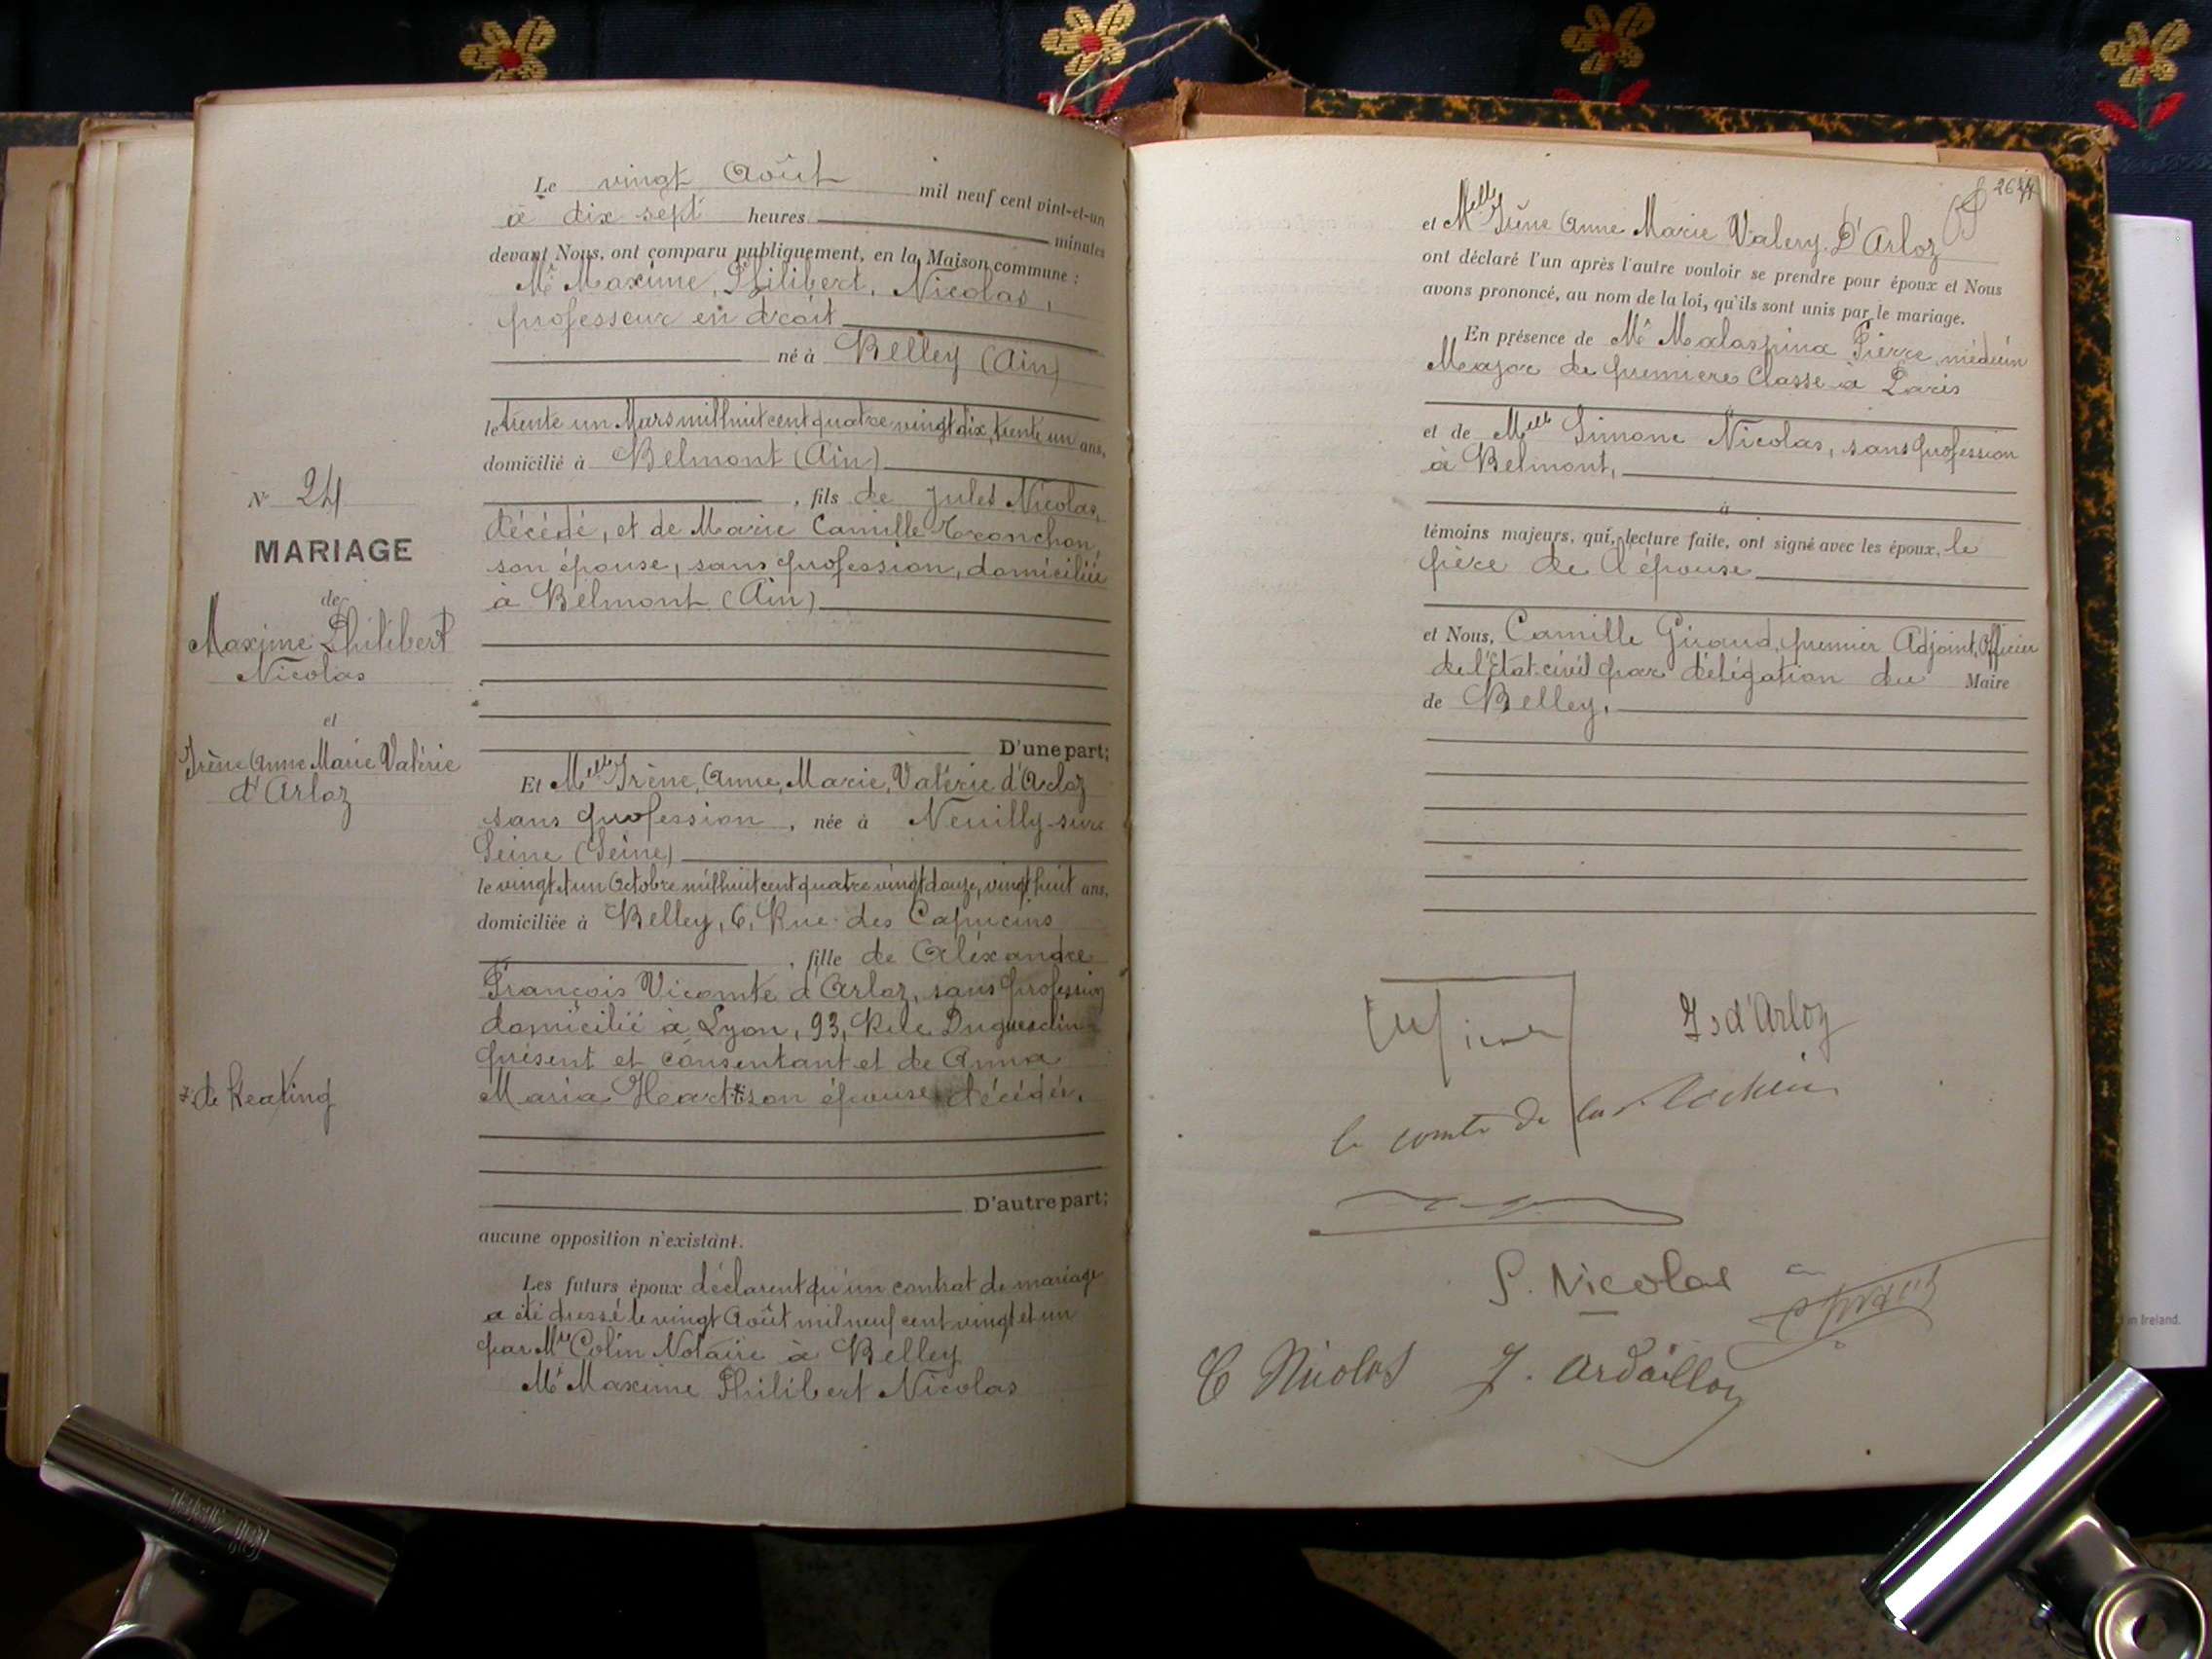 Le vingt Août mil neuf cent vint-et-un
à dix sept heures minutes
devant Nous, ont comparu publiquement, en la Maison commune :
Mr Maxime, Philibert, Nicolas,
professeur en droit
né à Belley (Ain)
le trente un Mars mil huit cent quatre vingt dix, trente un ans,
domicilié à Belmont (Ain)
, fils de Jules Nicolas,
décédé, et de Marie Camille Tronchon,
son épouse, sans profession, domiciliée
à Belmont (Ain)
D'une part;
N° 24
MARIAGE
de
Maxime Philibert
Nicolas
et
Irène Anne Marie Valérie
d'Arloz
Et Melle Irène, Anne, Marie, Valérie d'Arloz
sans profession, née à Neuilly-sur
Seine (Seine)
le vingt et un Octobre mil huit cent quatre vingt douze, vingt huit ans,
domiciliée à Belley, 6, Rue des Capucins
, fille de Aléxandre
François Vicomte d'Arloz, sans profession
domicilié à Lyon, 93, Rue Duguesclin
présent et consentant et de Anna
Maria Heart son épouse décédée.
de Keating
D'autre part;
aucune opposition n'existant.
Les futurs époux déclarent qu'un contrat de mariage
a été dressé le vingt Août mil neuf cent vingt et un
par Mtre Colin Notaire à Belley
Mr Maxime Philibert Nicolas
et Melle Irène Anne Marie Valery D'Arloz
ont déclaré l'un après l'autre vouloir se prendre pour époux et Nous
avons prononcé, au nom de la loi, qu'ils sont unis par le mariage.
En présence de Mr Malaspina Pierre, médecin
Major de premiere Classe à Paris
à
et de Melle Simone Nicolas, sans profession
à Belmont,
à
témoins majeurs, qui, lecture faite, ont signé avec les époux, le
père de l'épouse
et Nous, Camille Giraud, premier Adjoint, Officier
de l'État-civil par délégation du Maire
de Belley.
I d'Arloz
le comte de la
S. Nicolas
C Nicolas J. Ardaillon
in Ireland.